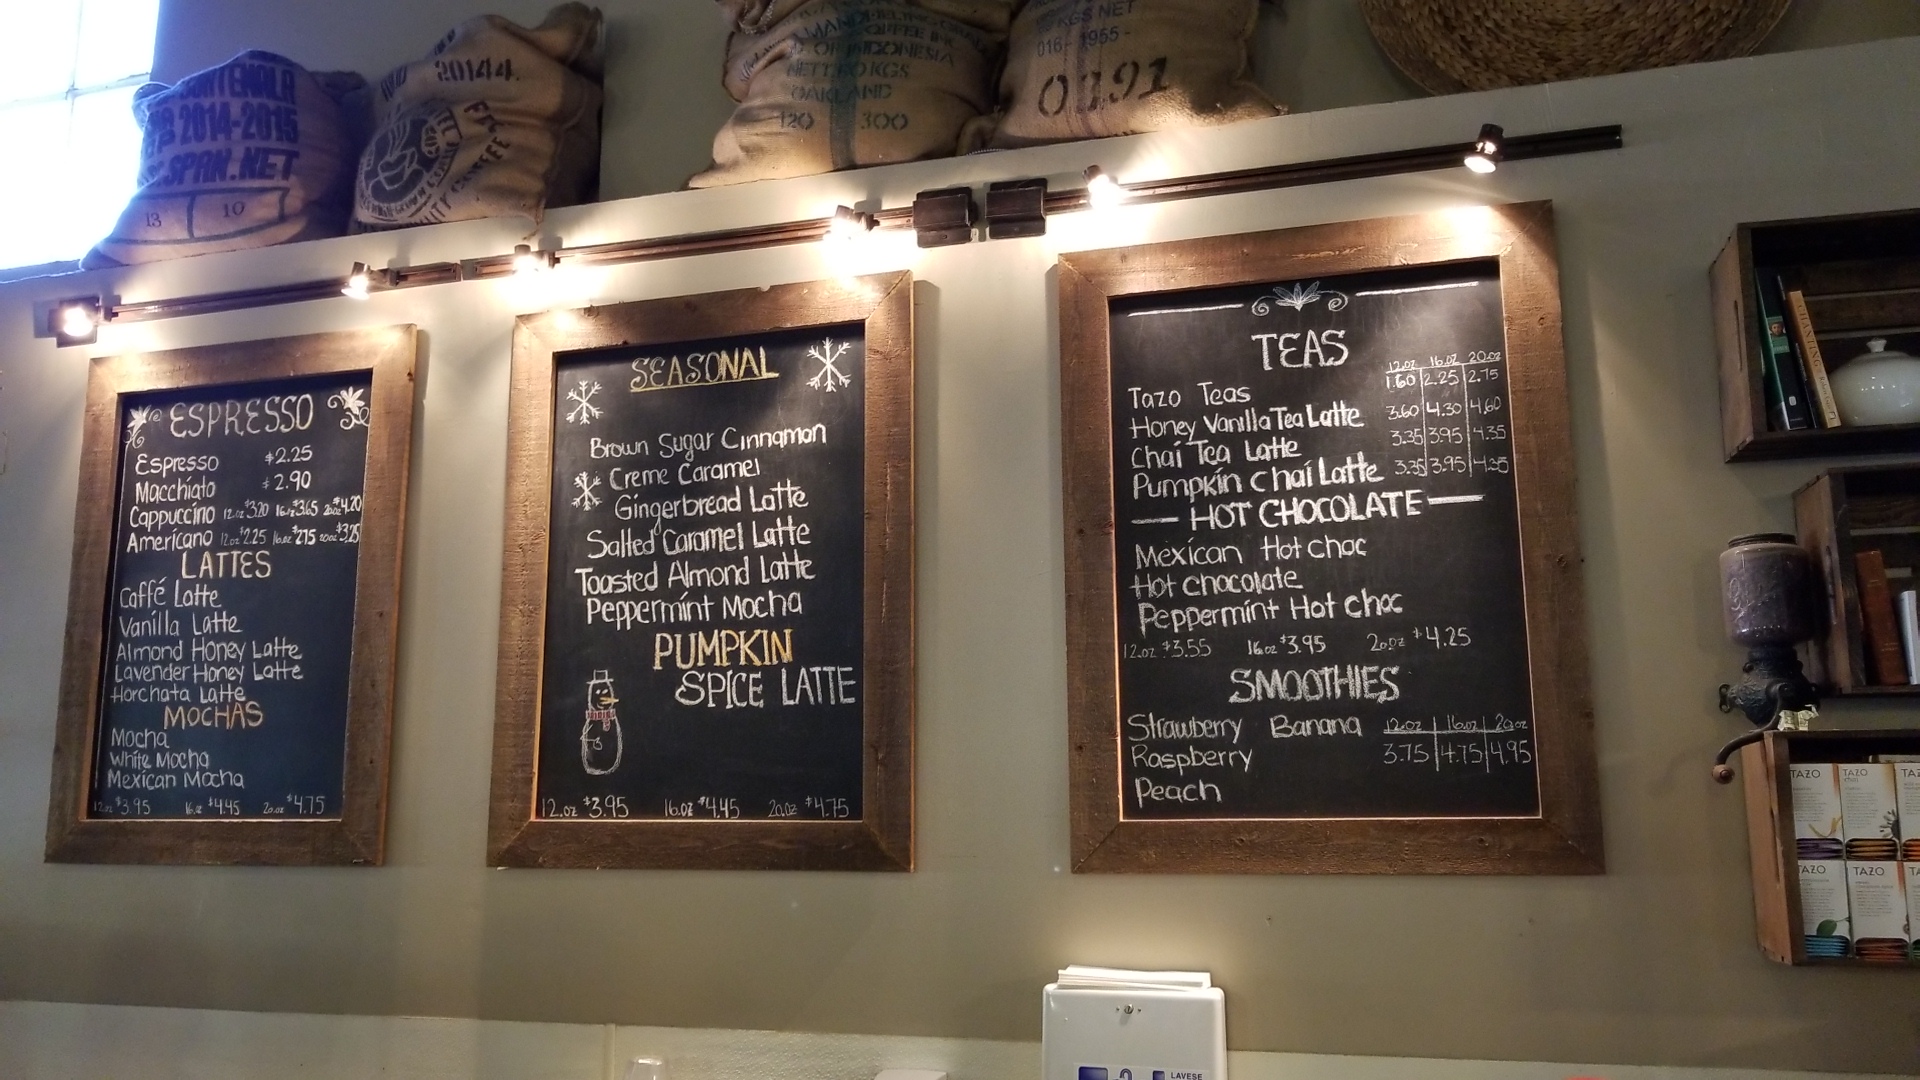 GUATEMALA
2014-2015
SPAN.NET
13 10
20144
COFFEE INC
OF INDONESIA
NETT 60 KGS
OAKLAND
120 300
KGS NET
016 - 1955 -
0391
ESPRESSO
Espresso $2.25
Macchiato $2.90
Cappuccino 12.oz $3.20 16.oz $3.65 20oz $4.20
Americano 12oz $2.25 16oz $2.75 20oz $3.25
LATTES
Caffé Latte
Vanilla Latte
Almond Honey Latte
Lavender Honey Latte
Horchata Latte
MOCHAS
Mocha
White Mocha
Mexican Mocha
12oz $3.95 16.oz $4.45 20.oz $4.75
SEASONAL
Brown Sugar Cinnamon
Creme Caramel
Gingerbread Latte
Salted Caramel Latte
Toasted Almond Latte
Peppermint Mocha
PUMPKIN
SPICE LATTE
12.oz $3.95 16.oz $4.45 20.oz $4.75
TEAS
12.oz 16.oz 20oz
Tazo Teas 1.60 2.25 2.75
Honey Vanilla Tea Latte 3.60 4.30 4.60
Chai Tea Latte 3.35 3.95 4.35
Pumpkin Chai Latte 3.35 3.95 4.35
HOT CHOCOLATE
Mexican Hot choc
Hot chocolate
Peppermint Hot choc
12.oz $3.55 16.oz $3.95 20oz $4.25
SMOOTHIES
Strawberry Banana 12.oz 16.oz 20.oz
Raspberry 3.75 4.75 4.95
Peach
TAZO TAZO
chai
TAZO TAZO
LAVESE